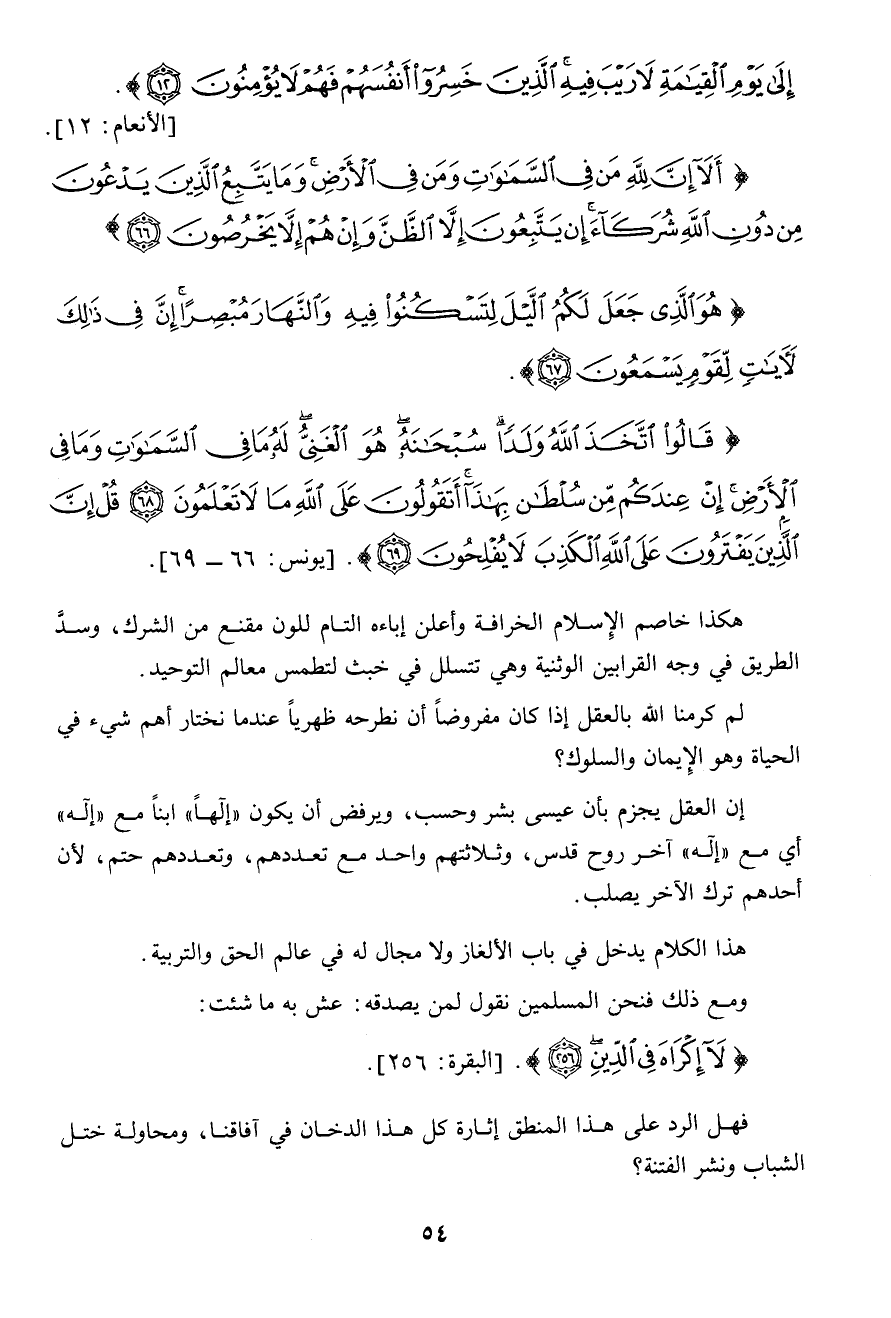 إِلَىٰ يَوْمِ ٱلْقِيَـٰمَةِ لَا رَيْبَ فِيهِ ۚ ٱلَّذِينَ خَسِرُوٓا۟ أَنفُسَهُمْ فَهُمْ لَا يُؤْمِنُونَ ١٢ ﴾ .
[الأنعام: ١٢].
﴿ أَلَآ إِنَّ لِلَّهِ مَن فِى ٱلسَّمَـٰوَٰتِ وَمَن فِى ٱلْأَرْضِ ۗ وَمَا يَتَّبِعُ ٱلَّذِينَ يَدْعُونَ
مِن دُونِ ٱللَّهِ شُرَكَآءَ ۚ إِن يَتَّبِعُونَ إِلَّا ٱلظَّنَّ وَإِنْ هُمْ إِلَّا يَخْرُصُونَ ٦٦ ﴾
﴿ هُوَ ٱلَّذِى جَعَلَ لَكُمُ ٱلَّيْلَ لِتَسْكُنُوا۟ فِيهِ وَٱلنَّهَارَ مُبْصِرًا ۚ إِنَّ فِى ذَٰلِكَ
لَـَٔايَـٰتٍ لِّقَوْمٍ يَسْمَعُونَ ٦٧ ﴾ .
﴿ قَالُوا۟ ٱتَّخَذَ ٱللَّهُ وَلَدًا ۗ سُبْحَـٰنَهُۥ ۖ هُوَ ٱلْغَنِىُّ ۖ لَهُۥ مَا فِى ٱلسَّمَـٰوَٰتِ وَمَا فِى
ٱلْأَرْضِ ۚ إِنْ عِندَكُم مِّن سُلْطَـٰنٍۭ بِهَـٰذَآ ۚ أَتَقُولُونَ عَلَى ٱللَّهِ مَا لَا تَعْلَمُونَ ٦٨ قُلْ إِنَّ
ٱلَّذِينَ يَفْتَرُونَ عَلَى ٱللَّهِ ٱلْكَذِبَ لَا يُفْلِحُونَ ٦٩ ﴾ . [يونس: ٦٦ – ٦٩].
هكذا خاصم الإسلام الخرافة وأعلن إباءه التام للون مقنع من الشرك، وسدَّ
الطريق في وجه القرابين الوثنية وهي تتسلل في خبث لتطمس معالم التوحيد.
لم كرمنا الله بالعقل إذا كان مفروضاً أن نطرحه ظهرياً عندما نختار أهم شيء في
الحياة وهو الإيمان والسلوك؟
إن العقل يجزم بأن عيسى بشر وحسب، ويرفض أن يكون «إلٰهاً» ابناً مع «إلٰه»
أي مع «إلٰه» آخر روح قدس، وثلاثتهم واحد مع تعددهم، وتعددهم حتم، لأن
أحدهم ترك الآخر يصلب.
هذا الكلام يدخل في باب الألغاز ولا مجال له في عالم الحق والتربية.
ومع ذلك فنحن المسلمين نقول لمن يصدقه: عش به ما شئت:
﴿ لَآ إِكْرَاهَ فِى ٱلدِّينِ ۖ ٢٥٦ ﴾ . [البقرة: ٢٥٦].
فهل الرد على هذا المنطق إثارة كل هذا الدخان في آفاقنا، ومحاولة ختل
الشباب ونشر الفتنة؟
٥٤